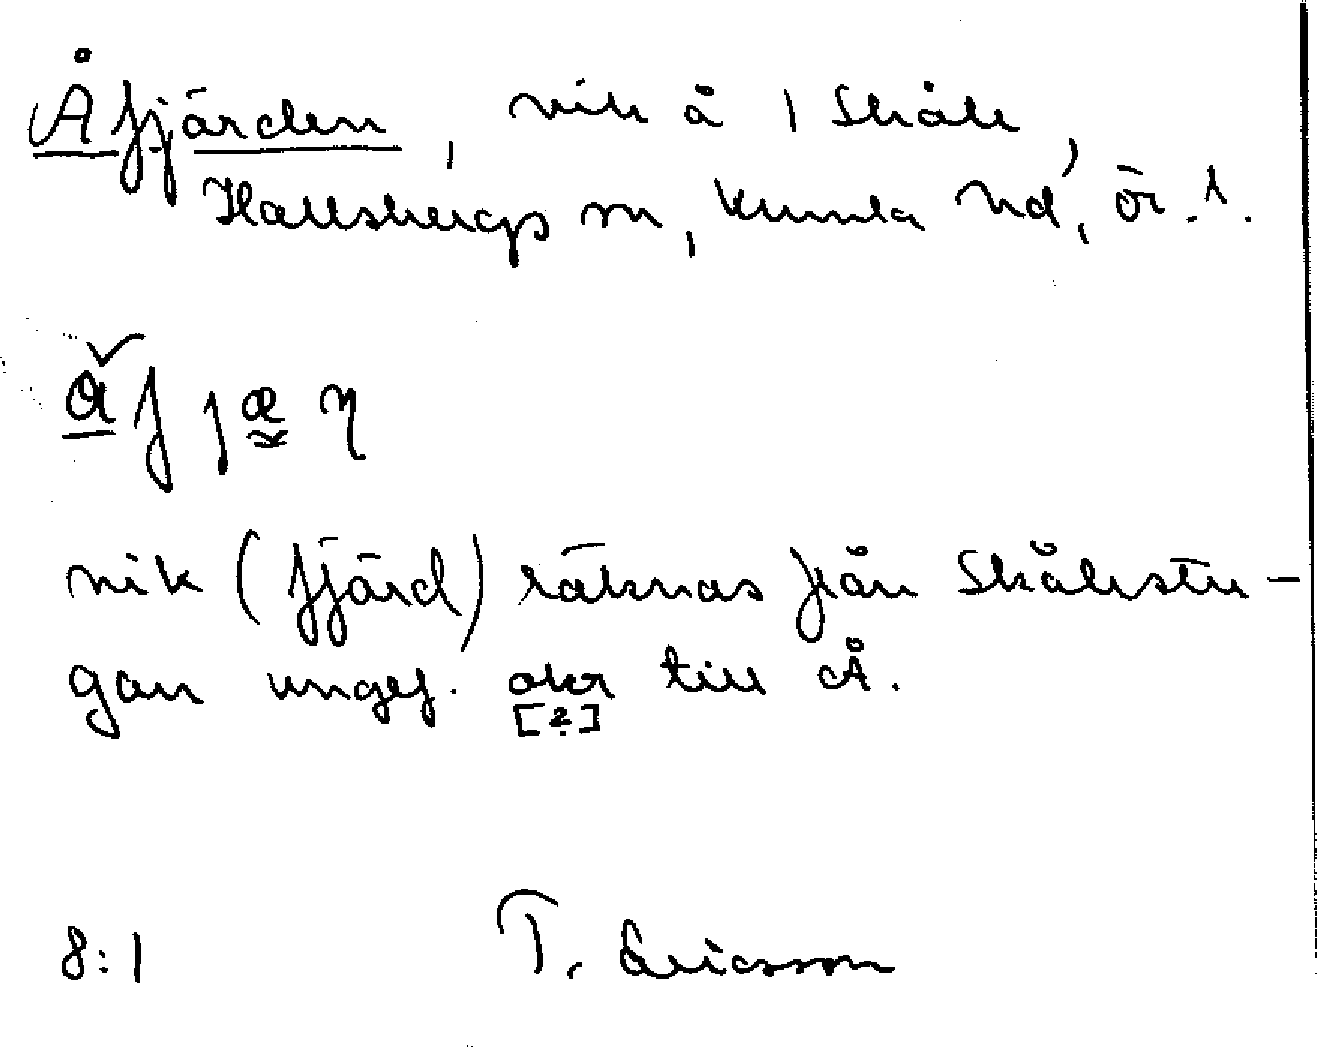 Åfjärden, vik å 1 Skåle,
Hallsbergs sn, Kumla hd, Ör. l.
vik (fjärd) räknas från Skålestu-
gan ungef. till Å.
[?]
8:1 T. Ericsson